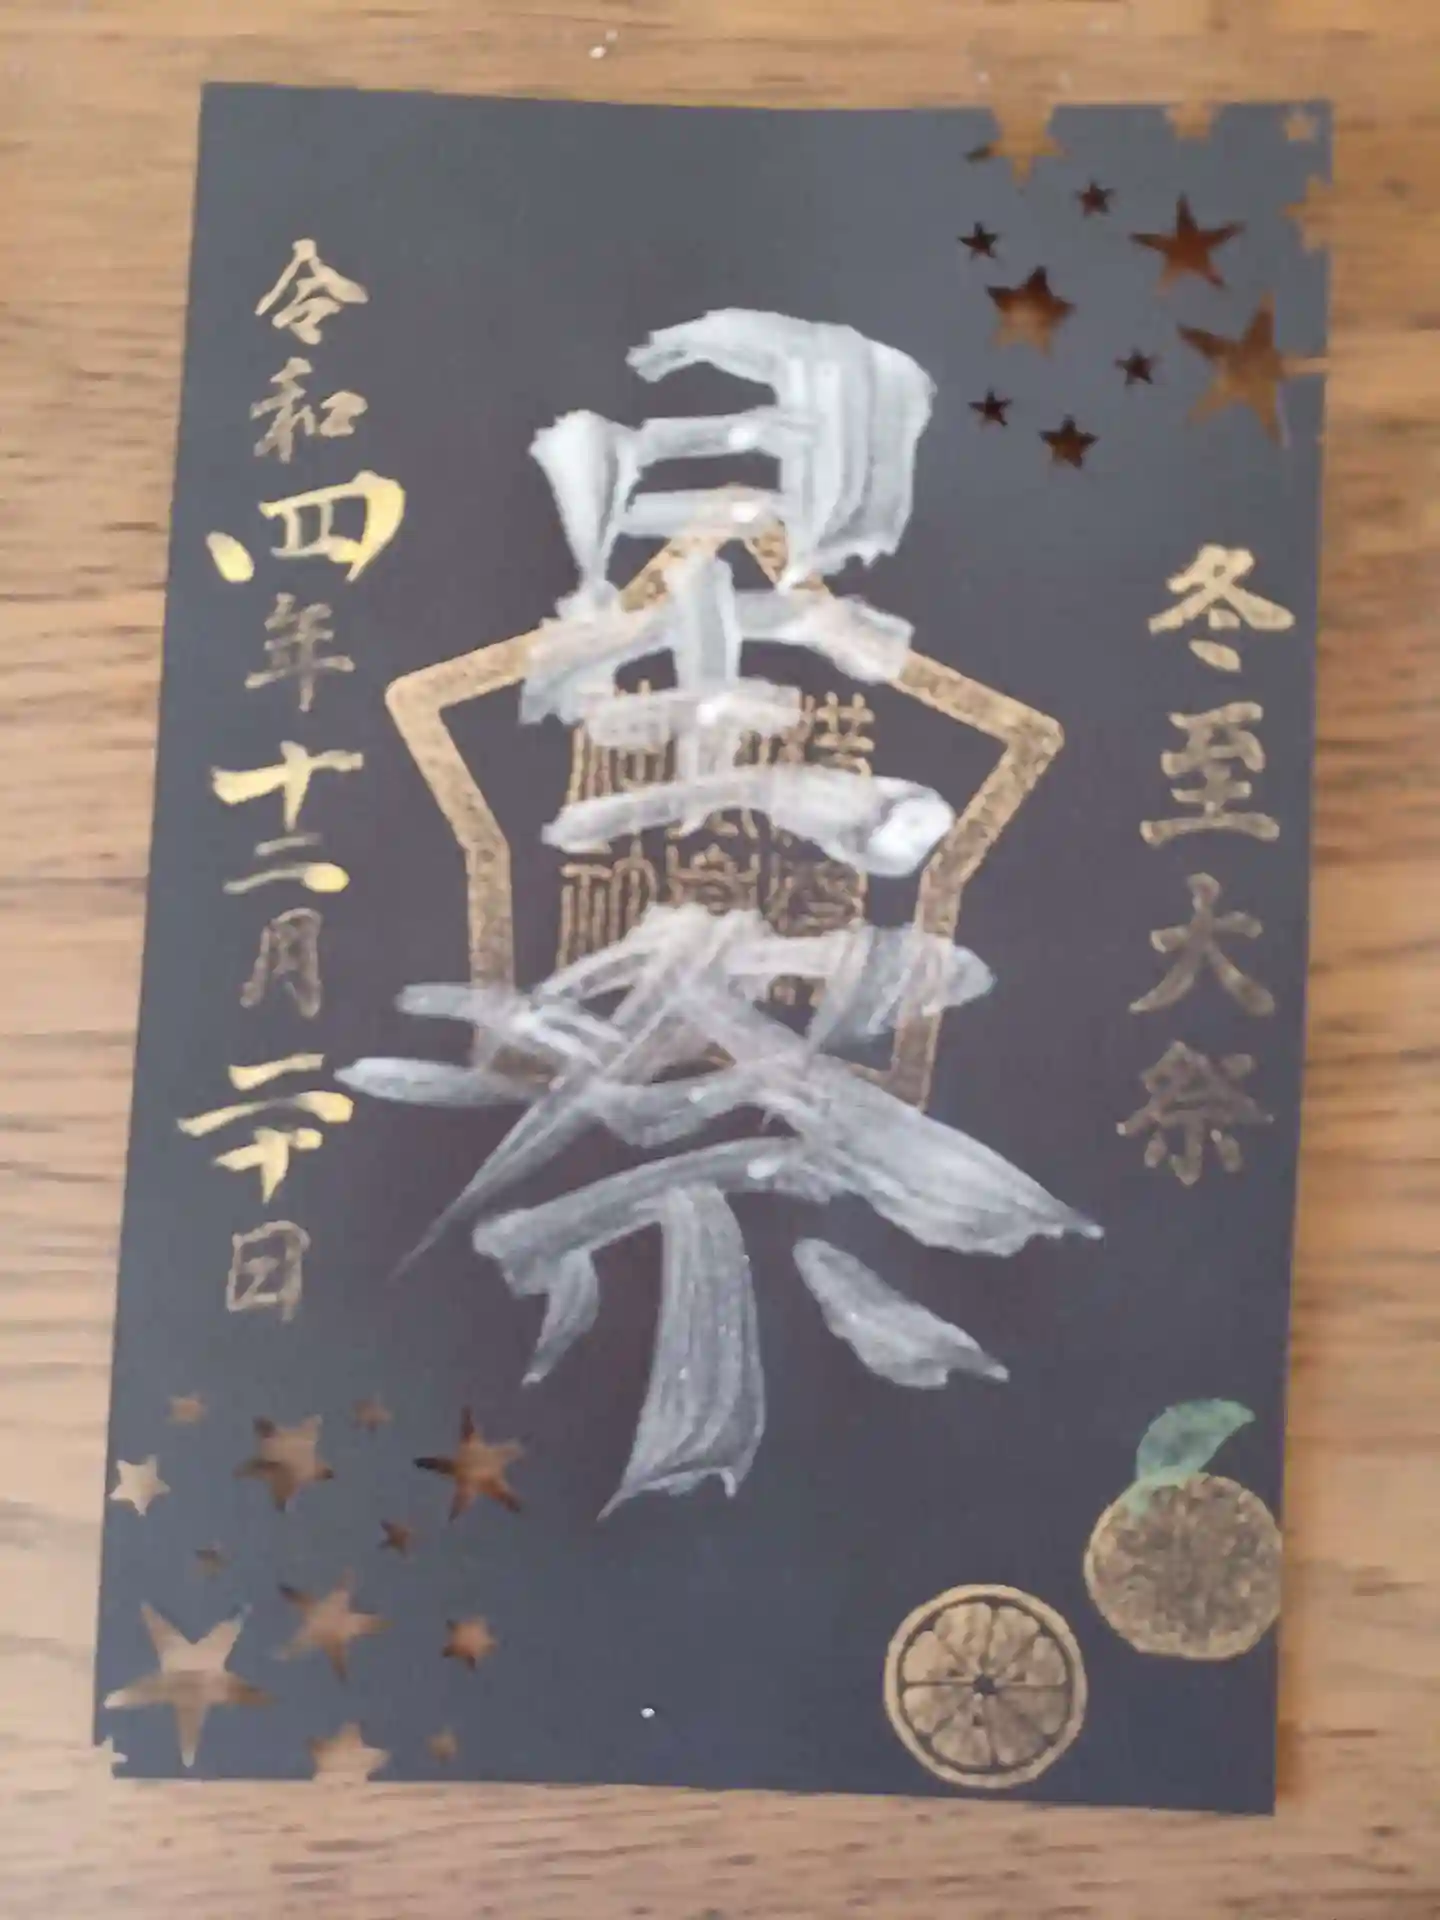 冬至大祭
星祭
令和四年十二月二十日